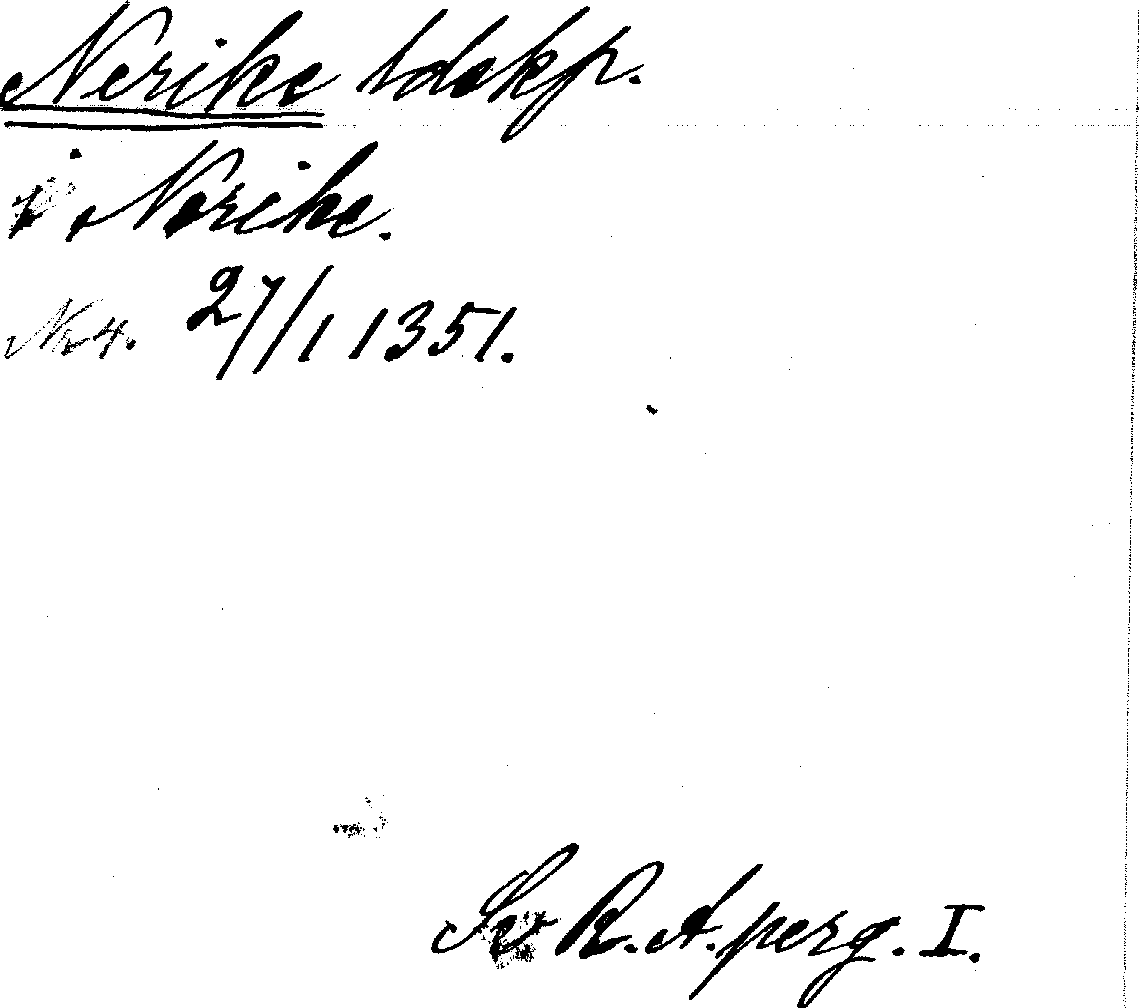 Nerike ldskp.
i Nerike.
Nr 4. 27/1 1351.
Sv R.A. perg. I.